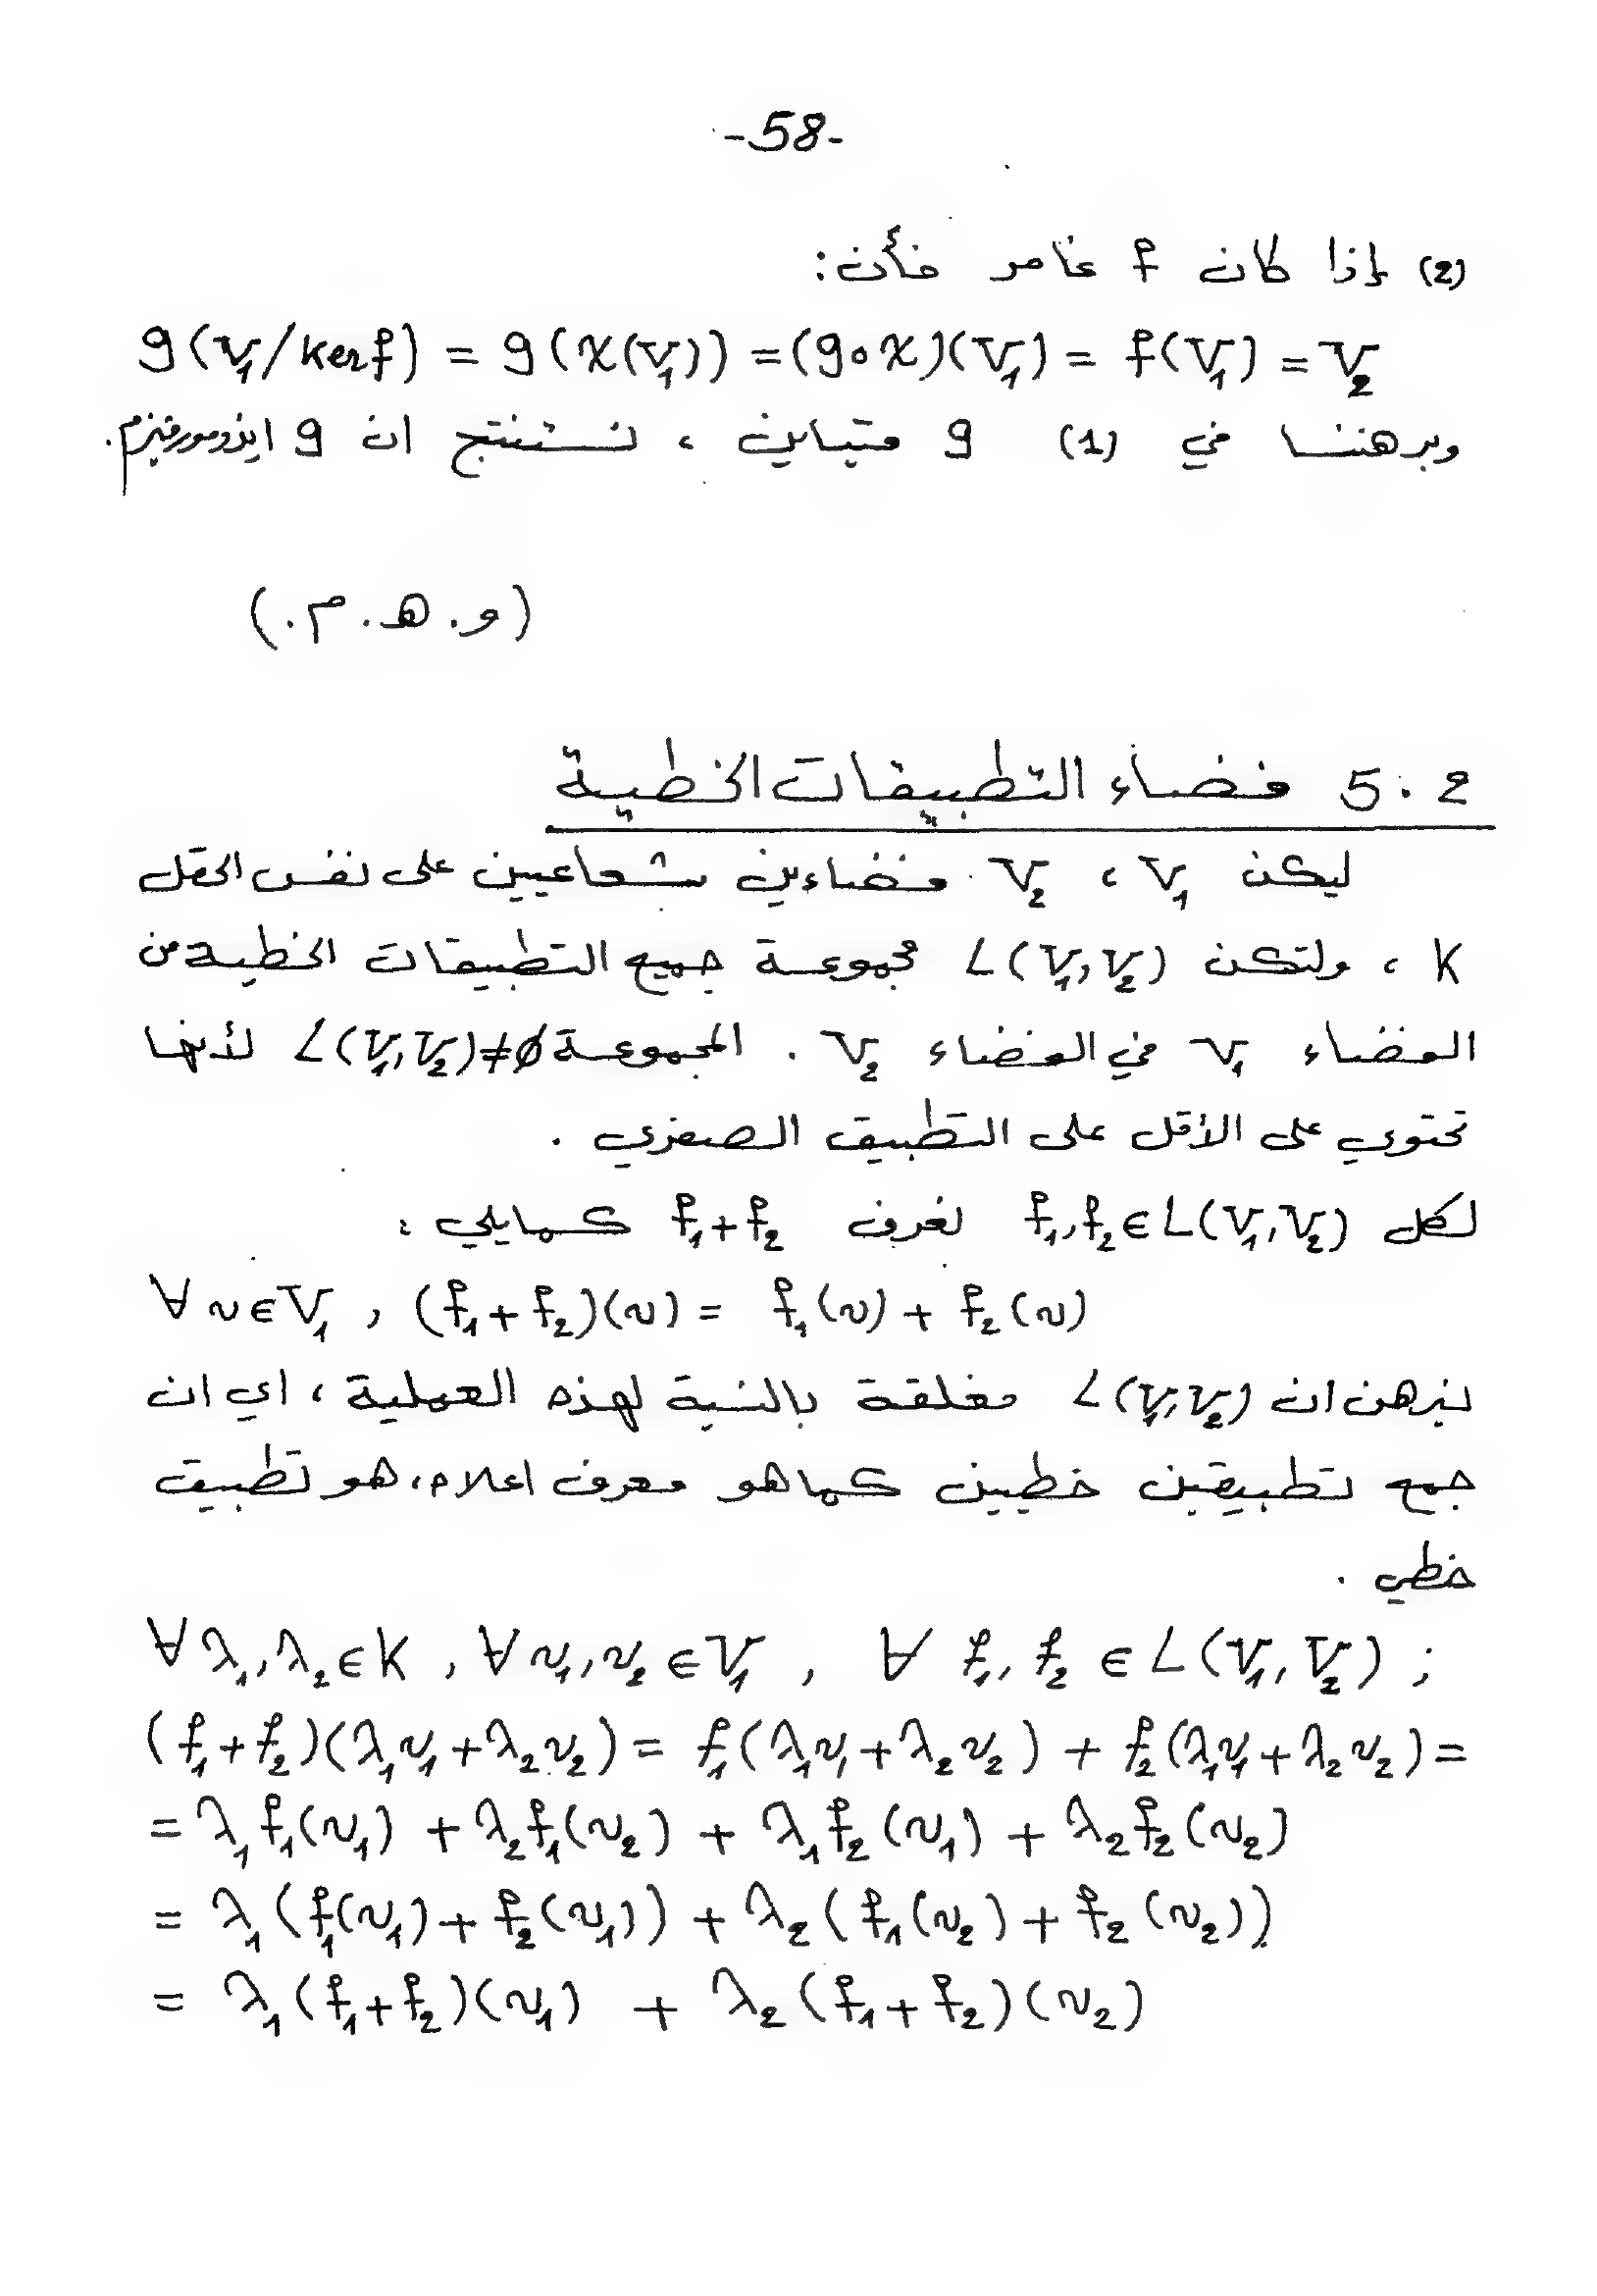 -58-
(2) إذا كان f غامر فأن:
g(V₁/kerf) = g(χ(V₁)) = (g∘χ)(V₁) = f(V₁) = V₂
وبرهننا في (1) g متباين ، نستنتج ان g ايزومورفيزم.
(و.هـ.م.)
5.2 فضاء التطبيقات الخطية
ليكن V₁ ، V₂ فضاءين شعاعيين على نفس الحقل
K ، ولتكن L(V₁,V₂) مجموعة جميع التطبيقات الخطية من
الفضاء V₁ في الفضاء V₂ . المجموعة L(V₁,V₂)≠∅ لأنها
تحتوي على الأقل على التطبيق الصفري .
لكل f₁,f₂∈L(V₁,V₂) نعرف f₁+f₂ كمايلي :
∀v∈V₁ , (f₁+f₂)(v) = f₁(v) + f₂(v)
لنبرهن ان L(V₁,V₂) مغلقة بالنسبة لهذه العملية ، اي ان
جمع تطبيقين خطيين كماهو معرف اعلاه، هو تطبيق
خطي .
∀λ₁,λ₂∈K , ∀v₁,v₂∈V₁ , ∀ f₁,f₂ ∈ L(V₁,V₂) ;
(f₁+f₂)(λ₁v₁+λ₂v₂) = f₁(λ₁v₁+λ₂v₂) + f₂(λ₁v₁+λ₂v₂) =
= λ₁f₁(v₁) + λ₂f₁(v₂) + λ₁f₂(v₁) + λ₂f₂(v₂)
= λ₁(f₁(v₁)+f₂(v₁)) + λ₂(f₁(v₂)+f₂(v₂))
= λ₁(f₁+f₂)(v₁) + λ₂(f₁+f₂)(v₂)